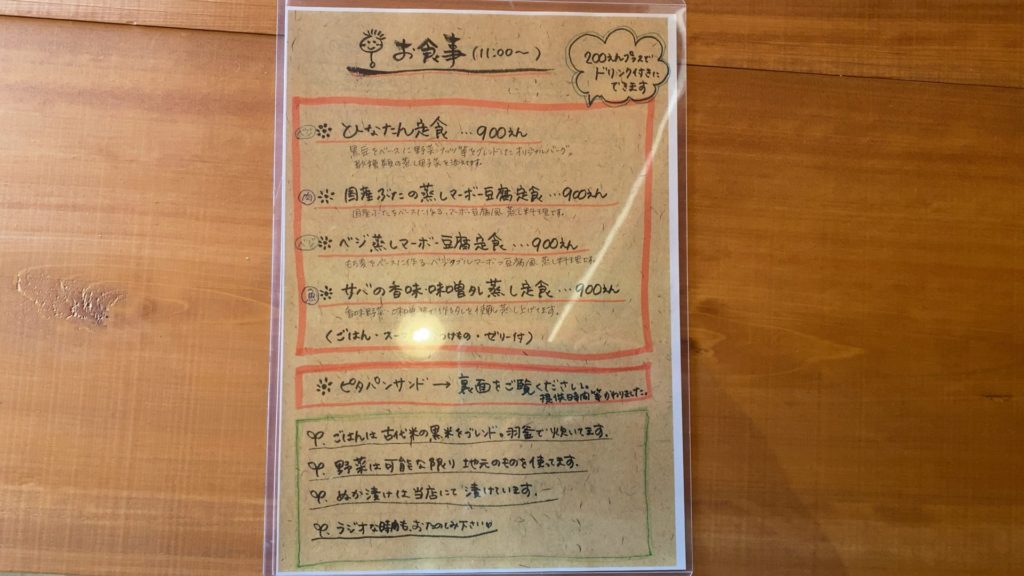 お食事 (11:00〜)
200えんプラスで
ドリンク付きに
できます
ベジ ひなたん定食 …900えん
黒豆をベースに野菜・ナッツ等をブレンドしたオリジナルバーグ。
数種類の蒸し団子菜を添えてます。
肉 国産ぶたの蒸しマーボー豆腐定食 …900えん
国産ぶたをベースに作る、マーボー豆腐風 蒸し料理です。
ベジ ベジ蒸しマーボー豆腐定食 …900えん
もち麦をベースに作る ベジタブルマーボー豆腐風 蒸し料理です。
魚 サバの香味・味噌ダレ蒸し定食 …900えん
香味野菜 味噌 作るタレを使用し蒸し上げてます。
(ごはん・スー つけもの・ゼリー付)
ピタパンサンド → 裏面をご覧ください。
提供時間等かわりました。
ごはんは 古代米の黒米をブレンド。羽釜で炊いてます。
野菜は可能な限り 地元のものを使ってます。
ぬか漬けは当店にて 漬けています。
ラジオな時間も、おたのしみ下さい♡